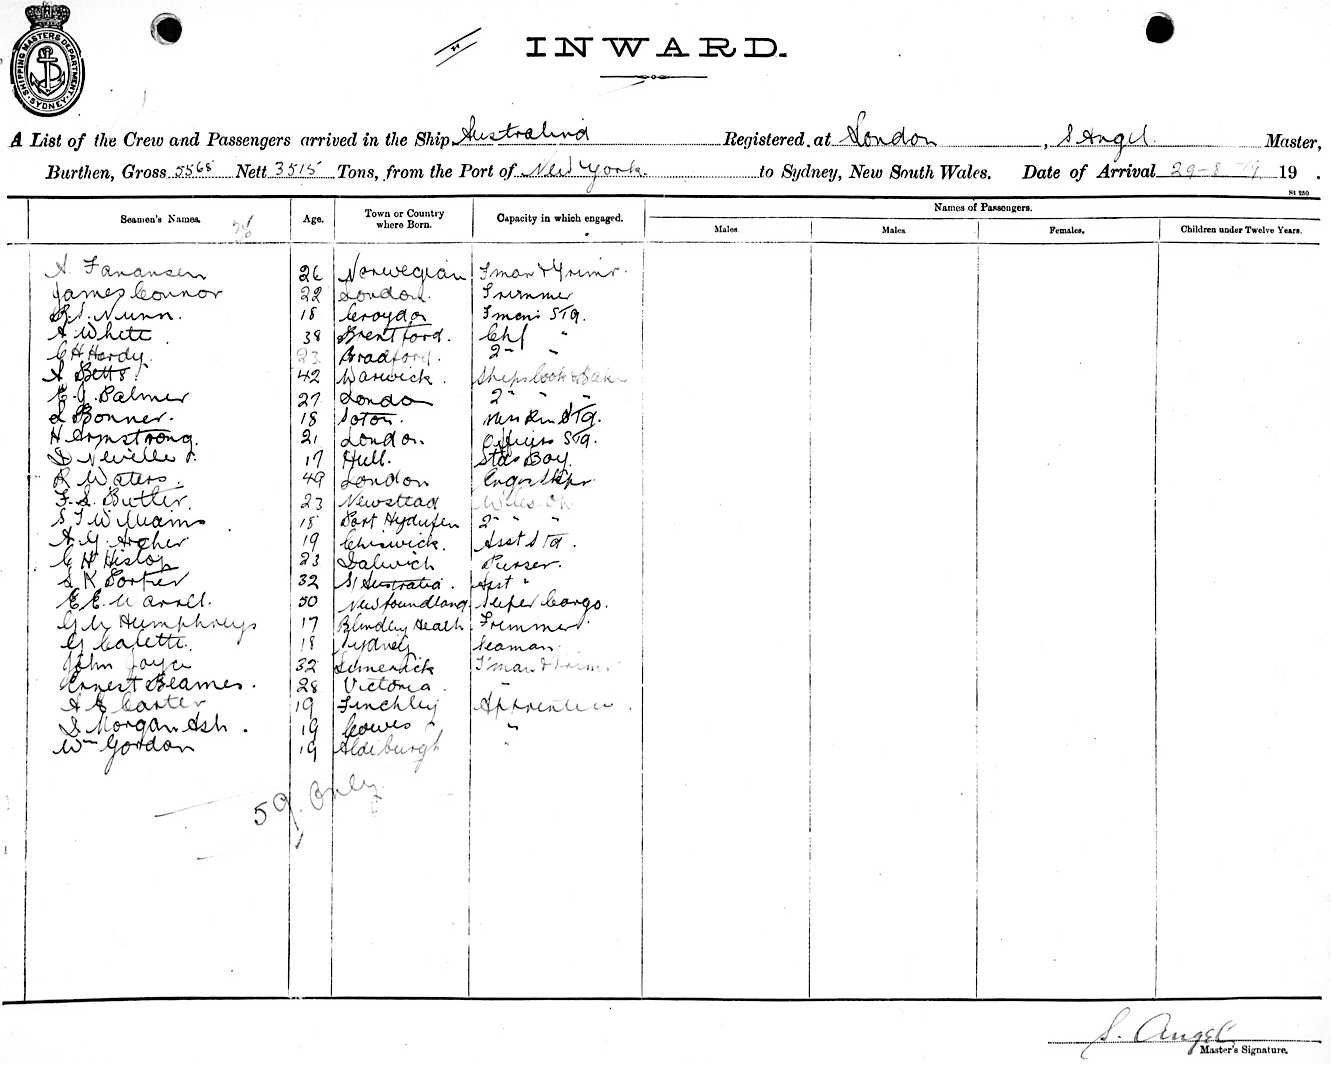 SHIPPING MASTERS DEPARTMENT SYDNEY
INWARD.
A List of the Crew and Passengers arrived in the Ship Australind Registered at London, S Angel. Master,
Burthen, Gross 5568 Nett 3515 Tons, from the Port of New York. to Sydney, New South Wales. Date of Arrival 29-8-19 19 .
St 250
Seamen's Names. Age. Town or Country where Born. Capacity in which engaged. Names of Passengers.
Males Males Females. Children under Twelve Years.
A. 26 Norwegian Fman & Trimr.
James Connor 22 London. Trimmer
Nunn. 18 Croydon Fmens Std.
A White 38 Brentford. Chf "
C H Hardy. 23 Bradford. 2 "
A Betts. 42 Warwick. Ships Cook & Baker
E. J. Palmer 27 London 2 " " "
L Bonner. 18 Soton. Mess Rm Std.
H Armstrong. 21 London. Officers Std.
Neville 17 Hull. Stds Boy.
R Waters. 49 London
F. S. Butler. 23 Newstead Wireless Op
S T Williams 18 Port 2 " "
A. G. Archer 19 Chiswick. Asst Std.
C H Hislop 23 Dalwich Purser.
S K Porter 32 S. Australia. Asst "
E E 50 Newfoundland Super Cargo.
G W Humphreys 17 Blindley Heath Trimmer.
G 18 Sydney Seaman.
John Joyce 32 Limerick F'man & Trimr
Ernest Beames. 28 Victoria. "
A E Carter 19 Finchley Apprentice.
S Morgan Ash. 19 Cowes "
Wm Gordon 19 Aldeburgh "
59. Only
S. Angel
Master's Signature.